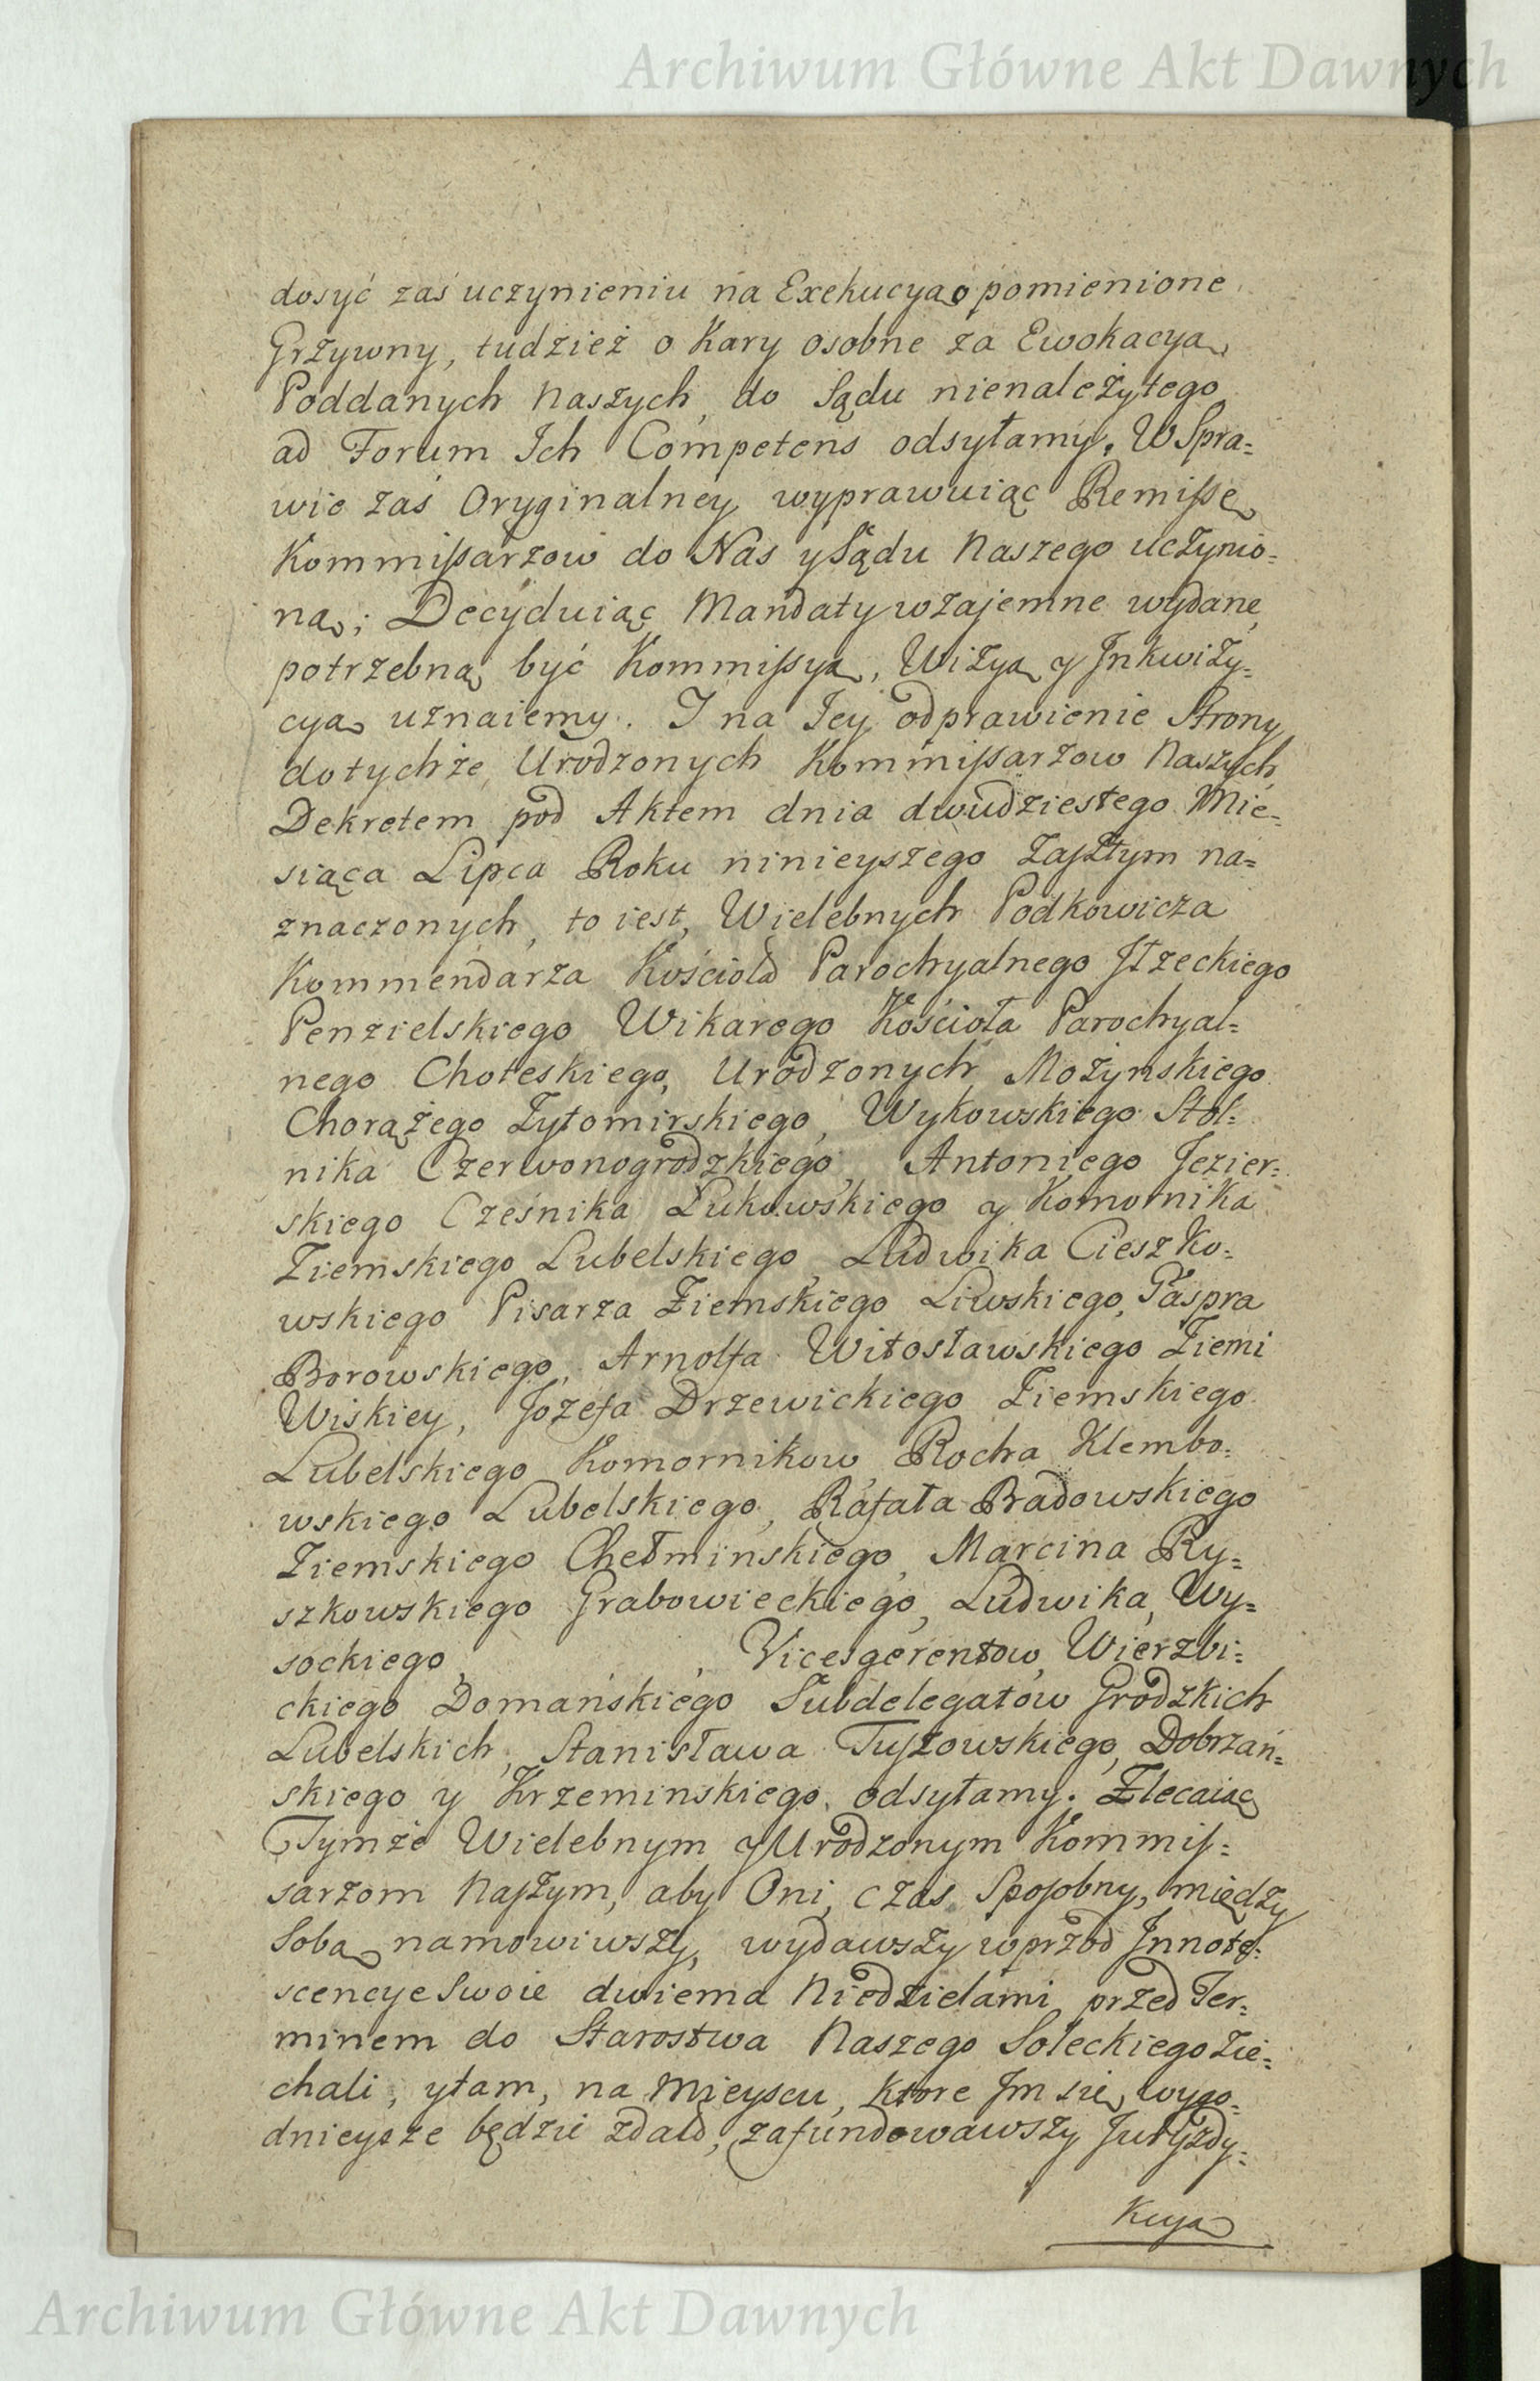 Archiwum Główne Akt Dawnych
dosyć zaś uczynieniu na Exekucyą o pomienione
Grzywny, tudzież o Kary osobne za Ewokacyą
Poddanych Naszych, do Sądu nienależytego
ad Forum Ich Competens odsyłamy. W Spra=
wie zaś Oryginalney wyprawuiąc Remissę
Kommissarzow do Nas y Sądu Naszego uczynio=
ną; Decyduiąc Mandaty wzajemne wydane,
potrzebną być Kommissyą, Wizyą y Jnkwizy=
cyą uznaiemy. I na Jey odprawienie Strony
do tychże Urodzonych Kommissarzow Naszych
Dekretem pod Aktem dnia dwudziestego Mie=
siąca Lipca Roku ninieyszego zaszłym na=
znaczonych, to iest, Wielebnych Podkowicza
Kommendarza Kościoła Parochyalnego Jłżeckiego
Penzielskiego Wikarego Kościoła Parochyal=
nego Choteskiego, Urodzonych Możynskiego
Chorążego Zytomirskiego, Wykowskiego Stol=
nika Czerwonogrodzkiego, Antoniego Jezier=
skiego Cześnika Łukowskiego y Komornika
Ziemskiego Lubelskiego, Ludwika Cieszko=
wskiego Pisarza Ziemskiego Liwskiego, Gaspra
Borowskiego, Arnolfa Witosławskiego Ziemi
Wiskiey, Jozefa Drzewickiego Ziemskiego
Lubelskiego Komornikow, Rocha Klembo=
wskiego Lubelskiego, Rafała Bradowskiego
Ziemskiego Chełminskiego, Marcina Ry=
szkowskiego Grabowieckiego, Ludwika, Wy=
sockiego, , Vicesgerentow, Wierzbi=
ckiego Domańskiego Subdelegatow Grodzkich
Lubelskich, Stanisława Tuszowskiego, Dobrzań=
skiego y Krzeminskiego, odsyłamy. Zlecaiąc
Tymże Wielebnym y Urodzonym Kommis=
sarzom Naszym, aby Oni, czas Sposobny, między
Sobą namowiwszy, wydawszy wprzod Jnnote=
scencye Swoie dwiema Niedzielami przed Ter=
minem do Starostwa Naszego Soleckiego zie=
chali, y tam, na Mieyscu, ktore Jm się wygo=
dnieysze będzie zdało, zafundowawszy Juryzdy=
kcyą
Archiwum Główne Akt Dawnych